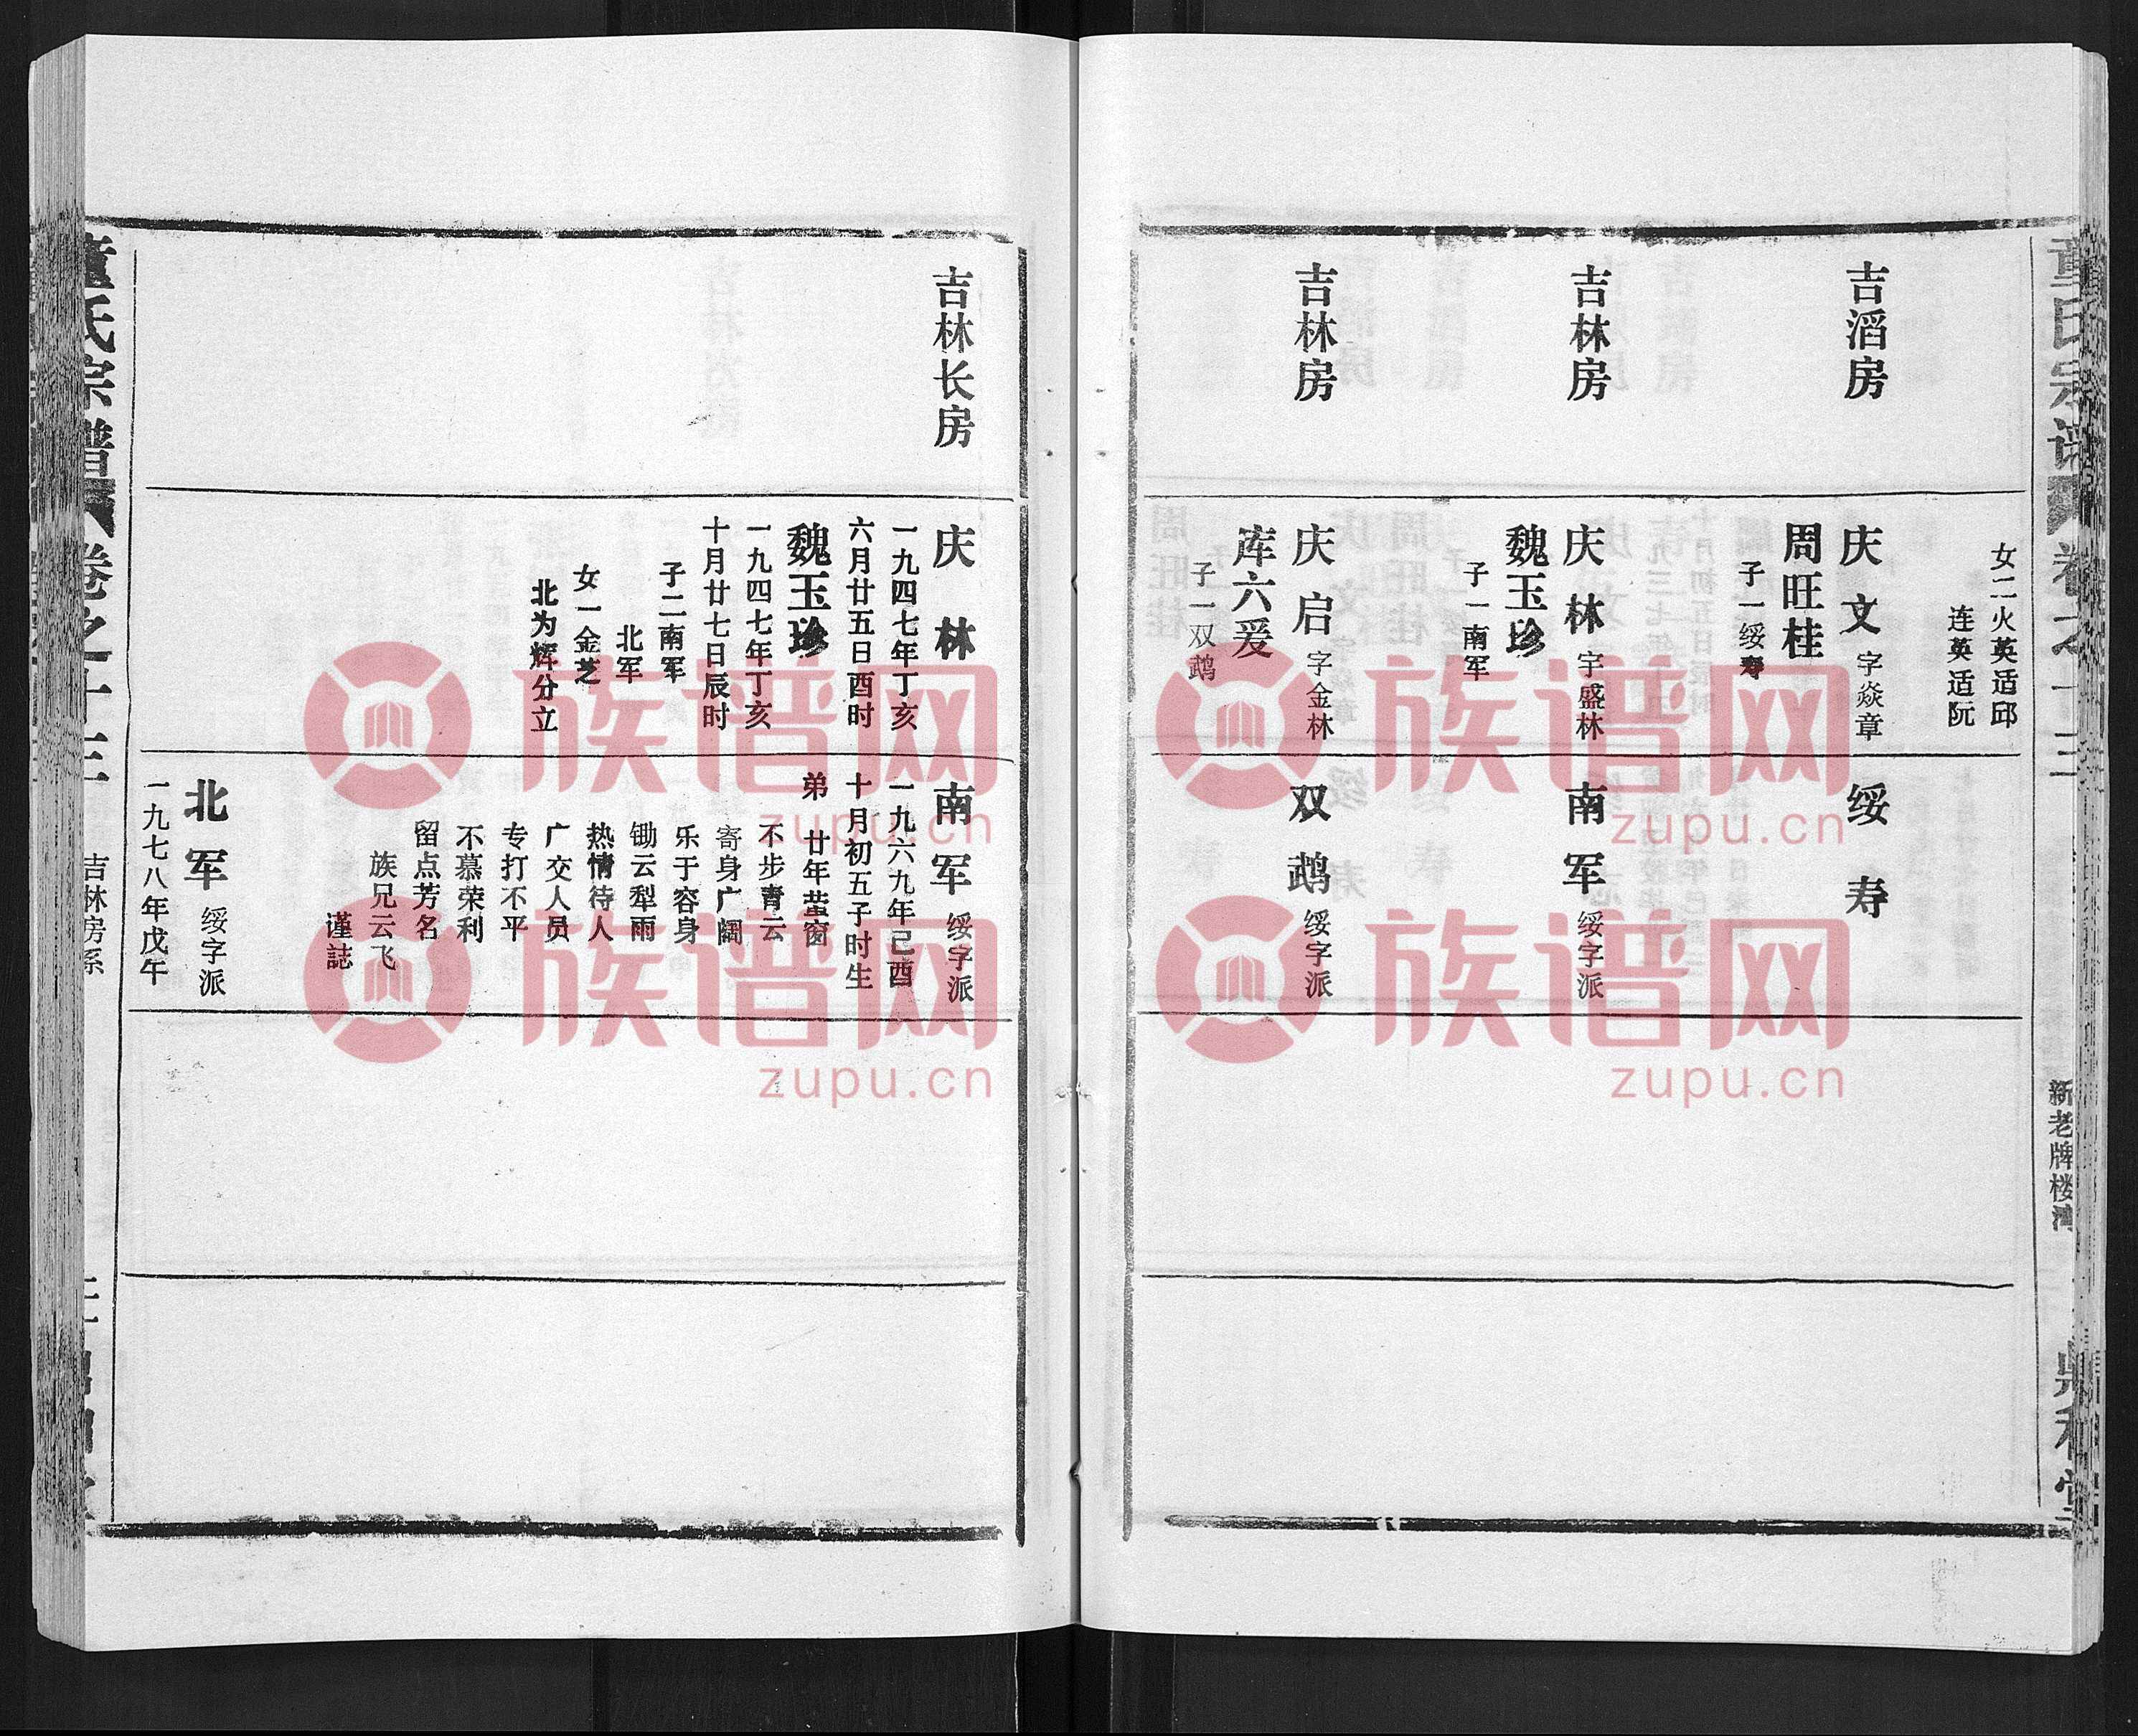 童氏宗谱
卷之十三
新老牌楼湾
鼎和堂
女二火英适邱
连英适阮
吉滔房
庆文 字焱章
周旺桂
子一绥寿
绥寿
吉林房
庆林 字盛林
魏玉珍
子一南军
南军 绥字派
吉林房
庆启 字金林
库六爱
子一双鹉
双鹉 绥字派
吉林长房
庆林
一九四七年丁亥
六月廿五日酉时
魏玉珍
一九四七年丁亥
十月廿七日辰时
子二南军
北军
女一金芝
北为辉分立
南军 绥字派
一九六九年己酉
十月初五子时生
弟 廿年萤窗
不步青云
寄身广阔
乐于容身
锄云犁雨
热情待人
广交人员
专打不平
不慕荣利
留点芳名
族兄云飞
谨誌
北军 绥字派
一九七八年戊午
童氏宗谱
卷之十三
吉林房系
族谱网
zupu.cn
族谱网
zupu.cn
族谱网
zupu.cn
族谱网
zupu.cn